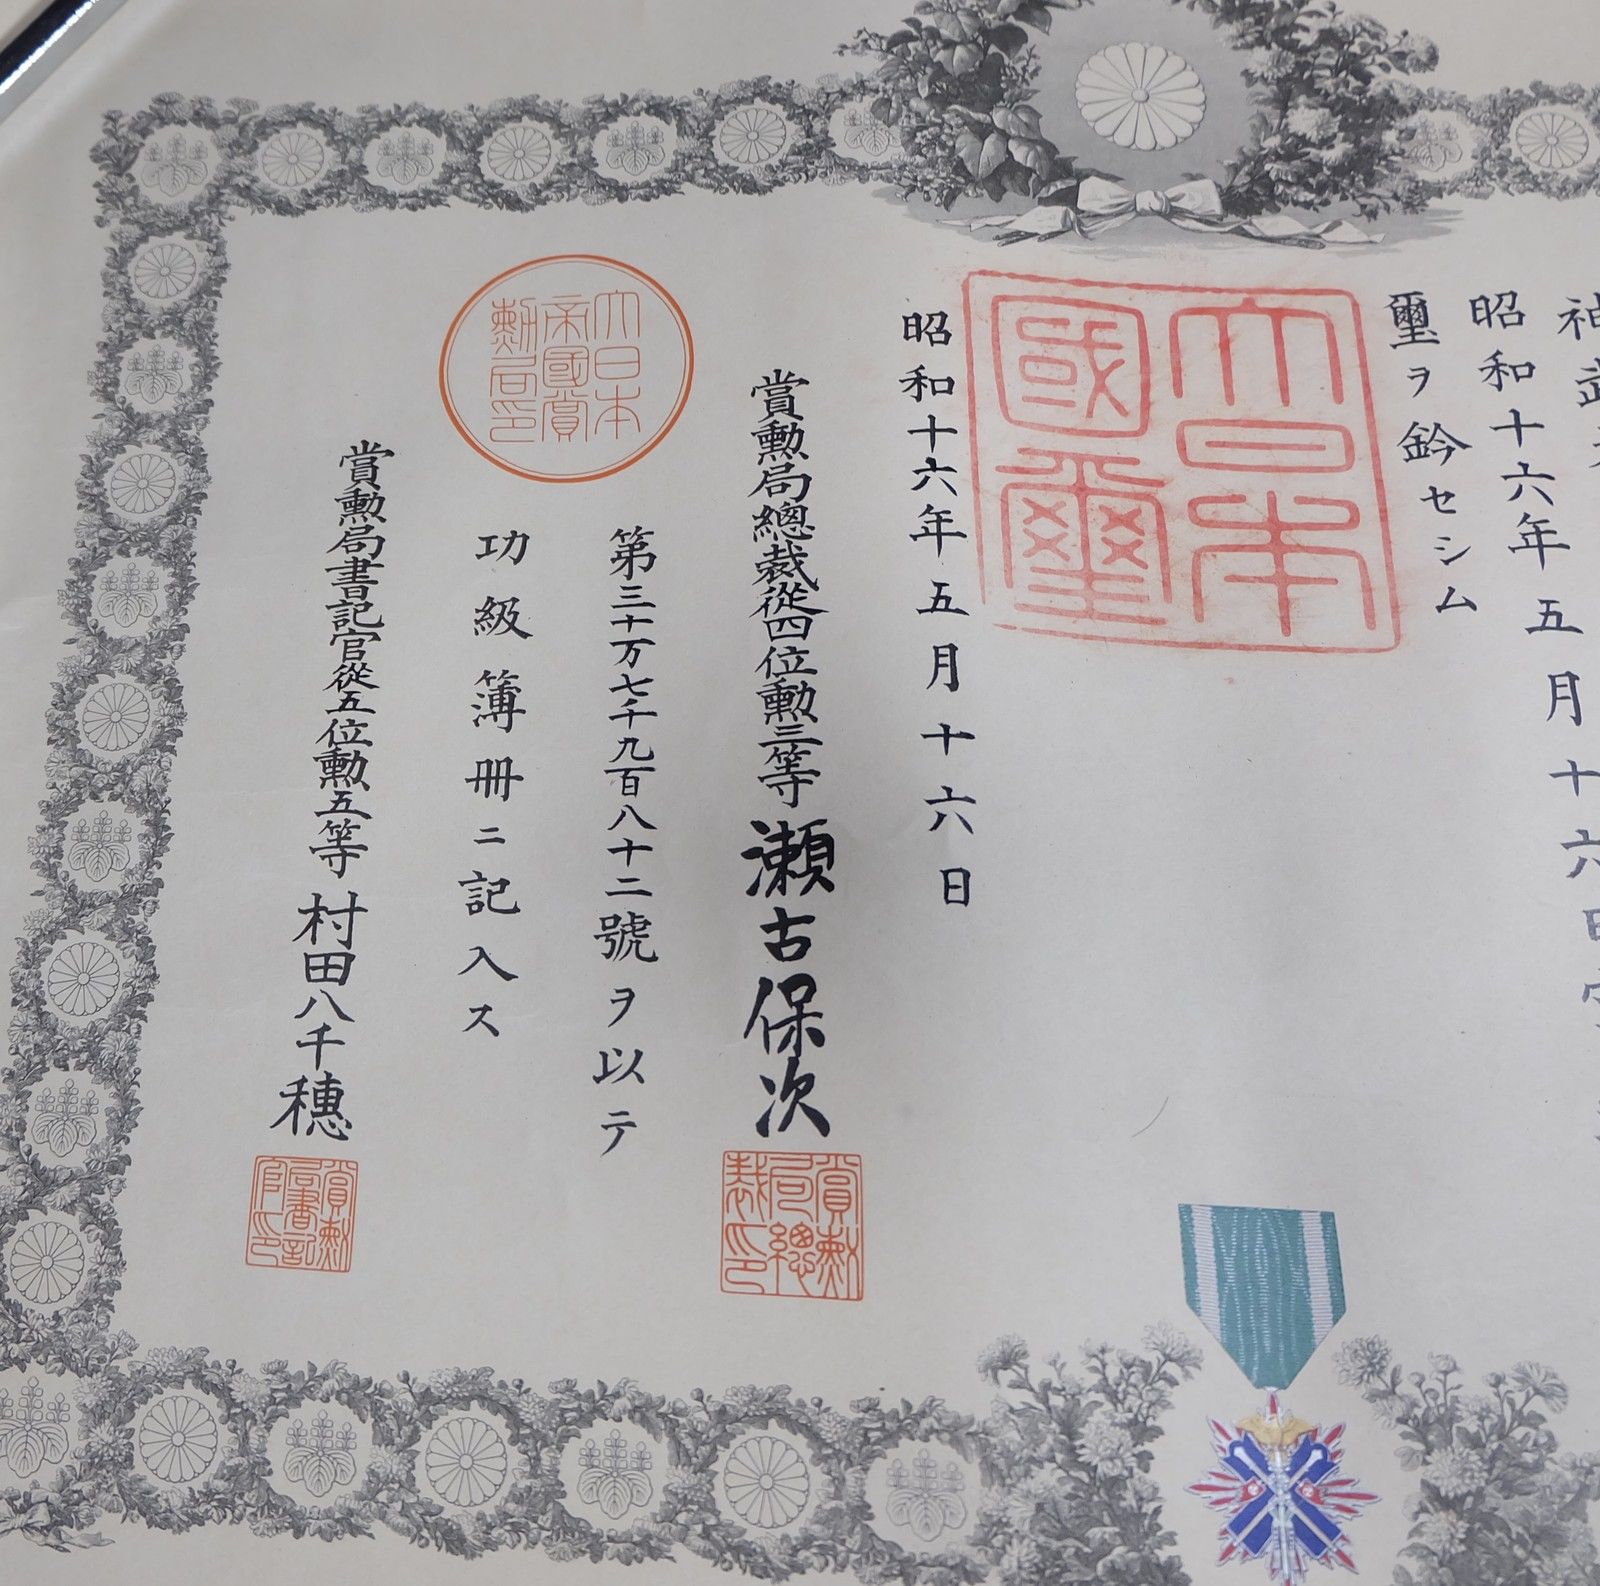 神武
昭和十六年五月十六日
璽ヲ鈐セシム
大日本國璽
昭和十六年五月十六日
賞勲局總裁從四位勲三等瀬古保次
賞勲局總裁印
第三十万七千九百八十二號ヲ以テ
大日本帝國賞勲局印
功級簿冊ニ記入ス
賞勲局書記官從五位勲五等村田八千穗
賞勲局書記官印